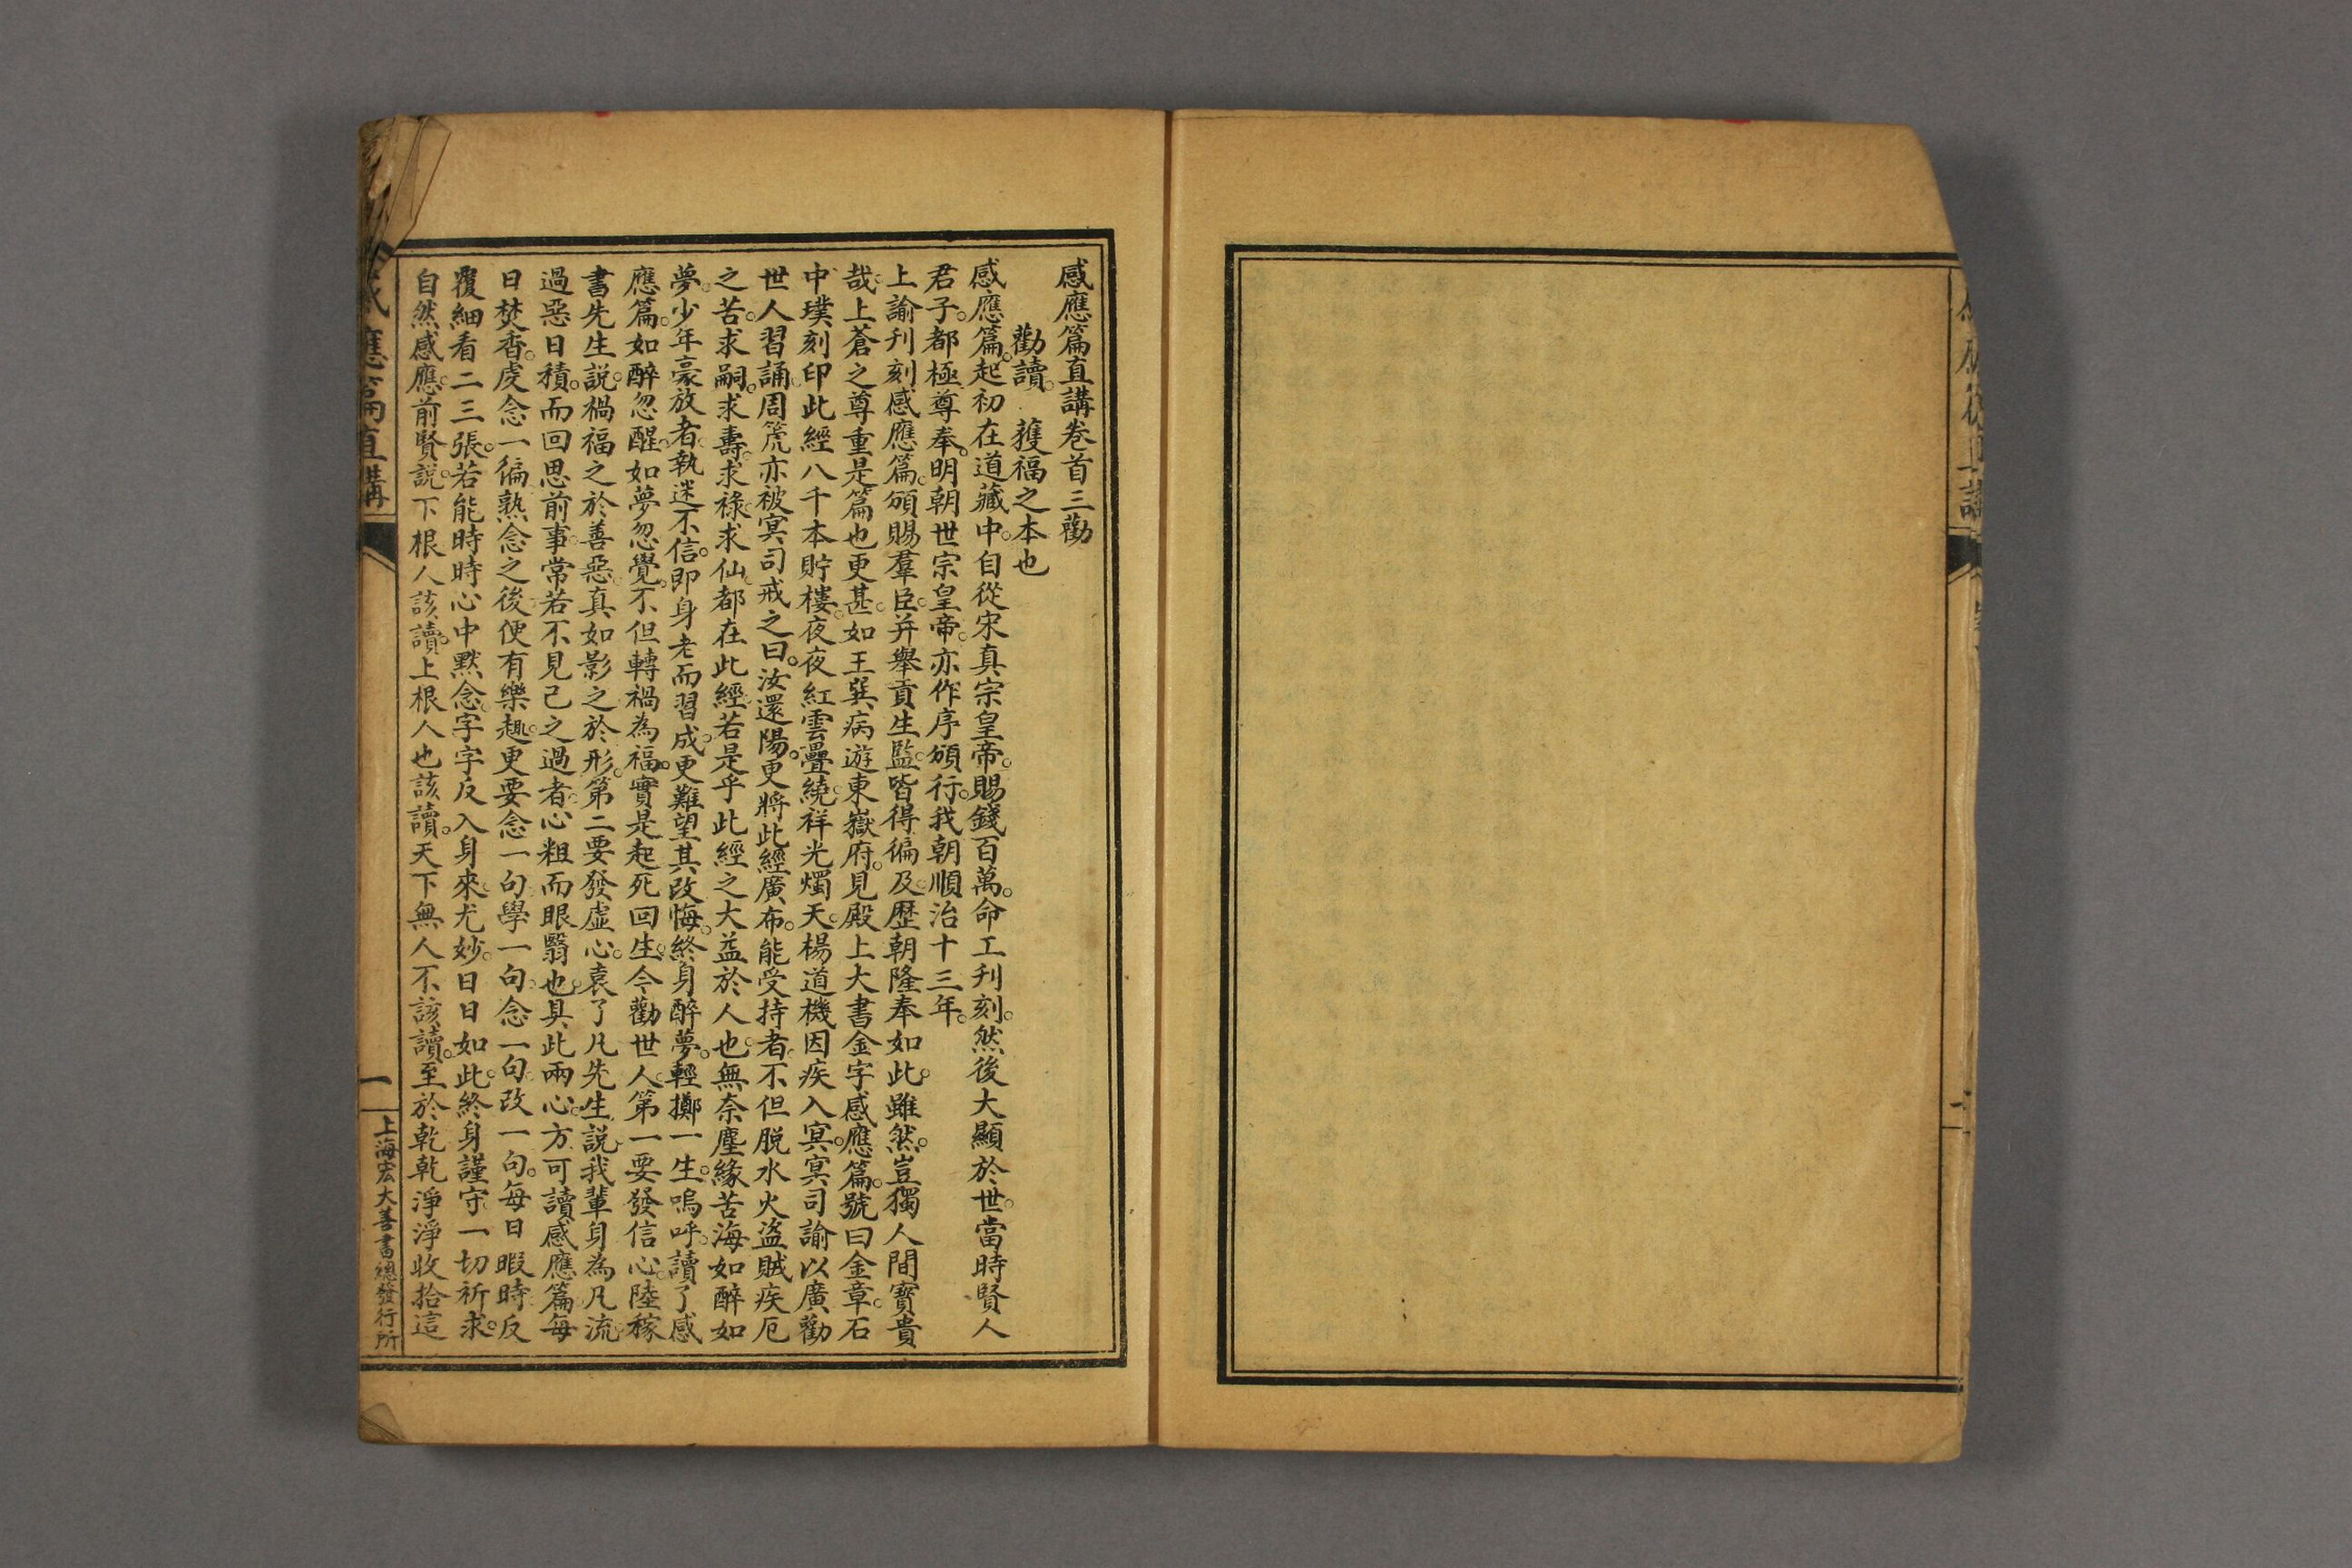 感應篇直講卷首三勸
勸讀。獲福之本也
感應篇。起初在道藏中。自從宋真宗皇帝。賜錢百萬。命工刋刻。然後大顯於世。當時賢人
君子。都極尊奉。明朝世宗皇帝。亦作序頒行。我朝順治十三年。
上諭刋刻感應篇。頒賜羣臣。并舉貢生監。皆得徧及。歷朝隆奉如此。雖然。豈獨人間寶貴
哉。上蒼之尊重是篇也更甚。如王巽病遊東嶽府。見殿上大書金字感應篇。號曰金章。石
中璞刻印此經八千本貯樓。夜夜紅雲疊繞。祥光燭天。楊道機因疾入冥。冥司諭以廣勸
世人習誦。周箎亦被冥司戒之曰。汝還陽。更將此經廣布。能受持者。不但脫水火盜賊疾厄
之苦。求嗣。求壽。求祿。求仙。都在此經。若是乎此經之大益於人也。無奈塵緣苦海。如醉如
夢。少年豪放者。執迷不信。即身老而習成。更難望其改悔。終身醉夢。輕擲一生。嗚呼。讀了感
應篇。如醉忽醒。如夢忽覺。不但轉禍為福。實是起死回生。今勸世人。第一要發信心。陸稼
書先生說。禍福之於善惡。真如影之於形。第二要發虛心。袁了凡先生說。我輩身為凡流。
過惡日積。而回思前事。常若不見己之過者。心粗而眼翳也。具此兩心。方可讀感應篇。每
日焚香。虔念一徧。熟念之後。便有樂趣。更要念一句。學一句。念一句。改一句。每日暇時。反
覆細看二三張。若能時時心中默念。字字反入身來。尤妙。日日如此。終身謹守。一切祈求。
自然感應。前賢說。下根人該讀。上根人也該讀。天下無人不該讀。至於乾乾淨淨。收拾這
感應篇直講
一
上海宏大善書總發行所